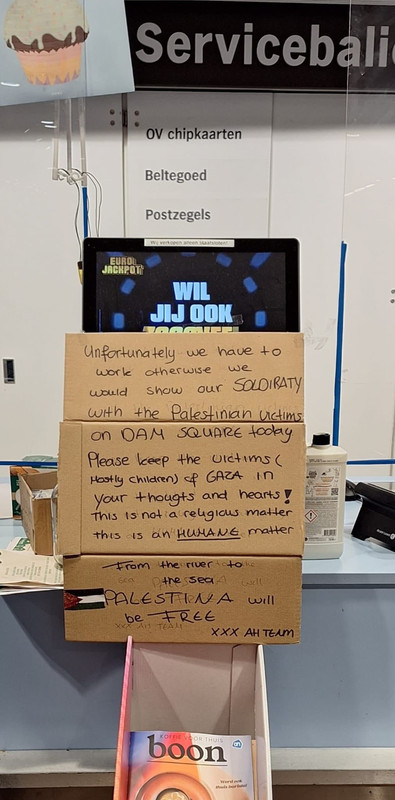 Servicebalie
OV chipkaarten
Beltegoed
Postzegels
EURO
JACKPOT
WIL
JIJ OOK
Unfortunately we have to
work otherwise we
would show our SOLDIRATY
with the Palestinian victims
on DAM SQUARE today
Please keep the victims (
Mostly children) of GAZA in
your thougts and hearts!
This is not a religious matter
this is an HUMANE matter
From the river to
the sea
PALESTINA will
be FREE
XXX AH TEAM
XXX AH TEAM
KOFFIE VOOR THUIS
boon